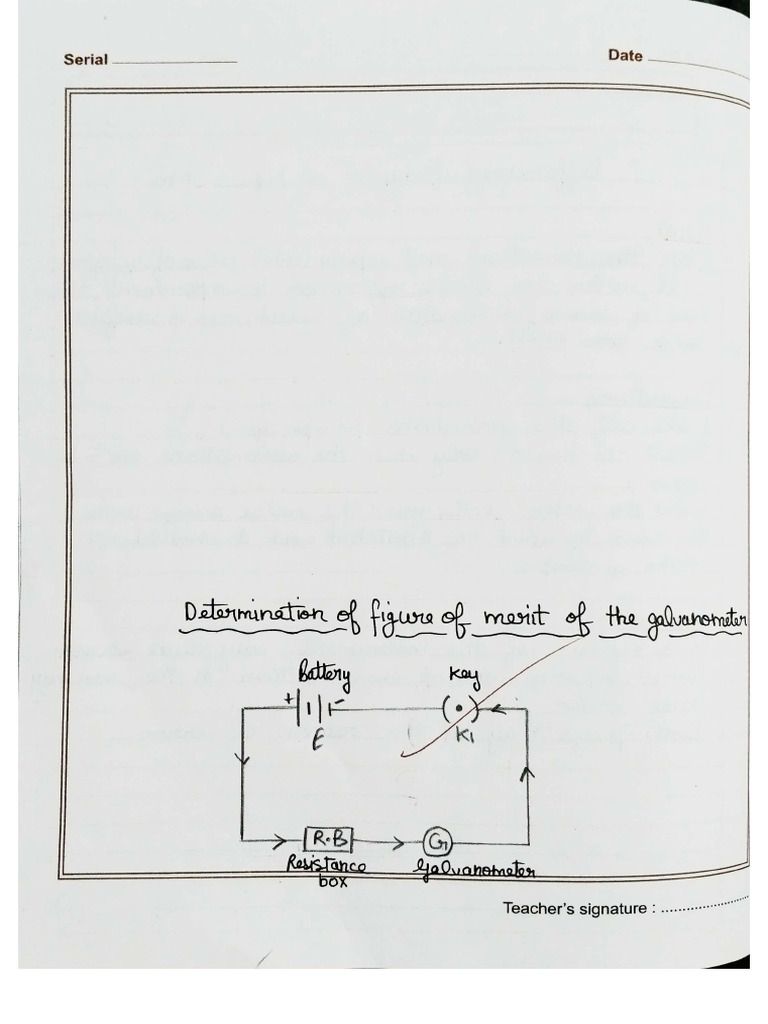 Serial
Date
Determination of figure of merit of the galvanometer
Battery
Key
+
E
K1
R.B
G
Resistance
box
Galvanometer
Teacher's signature :